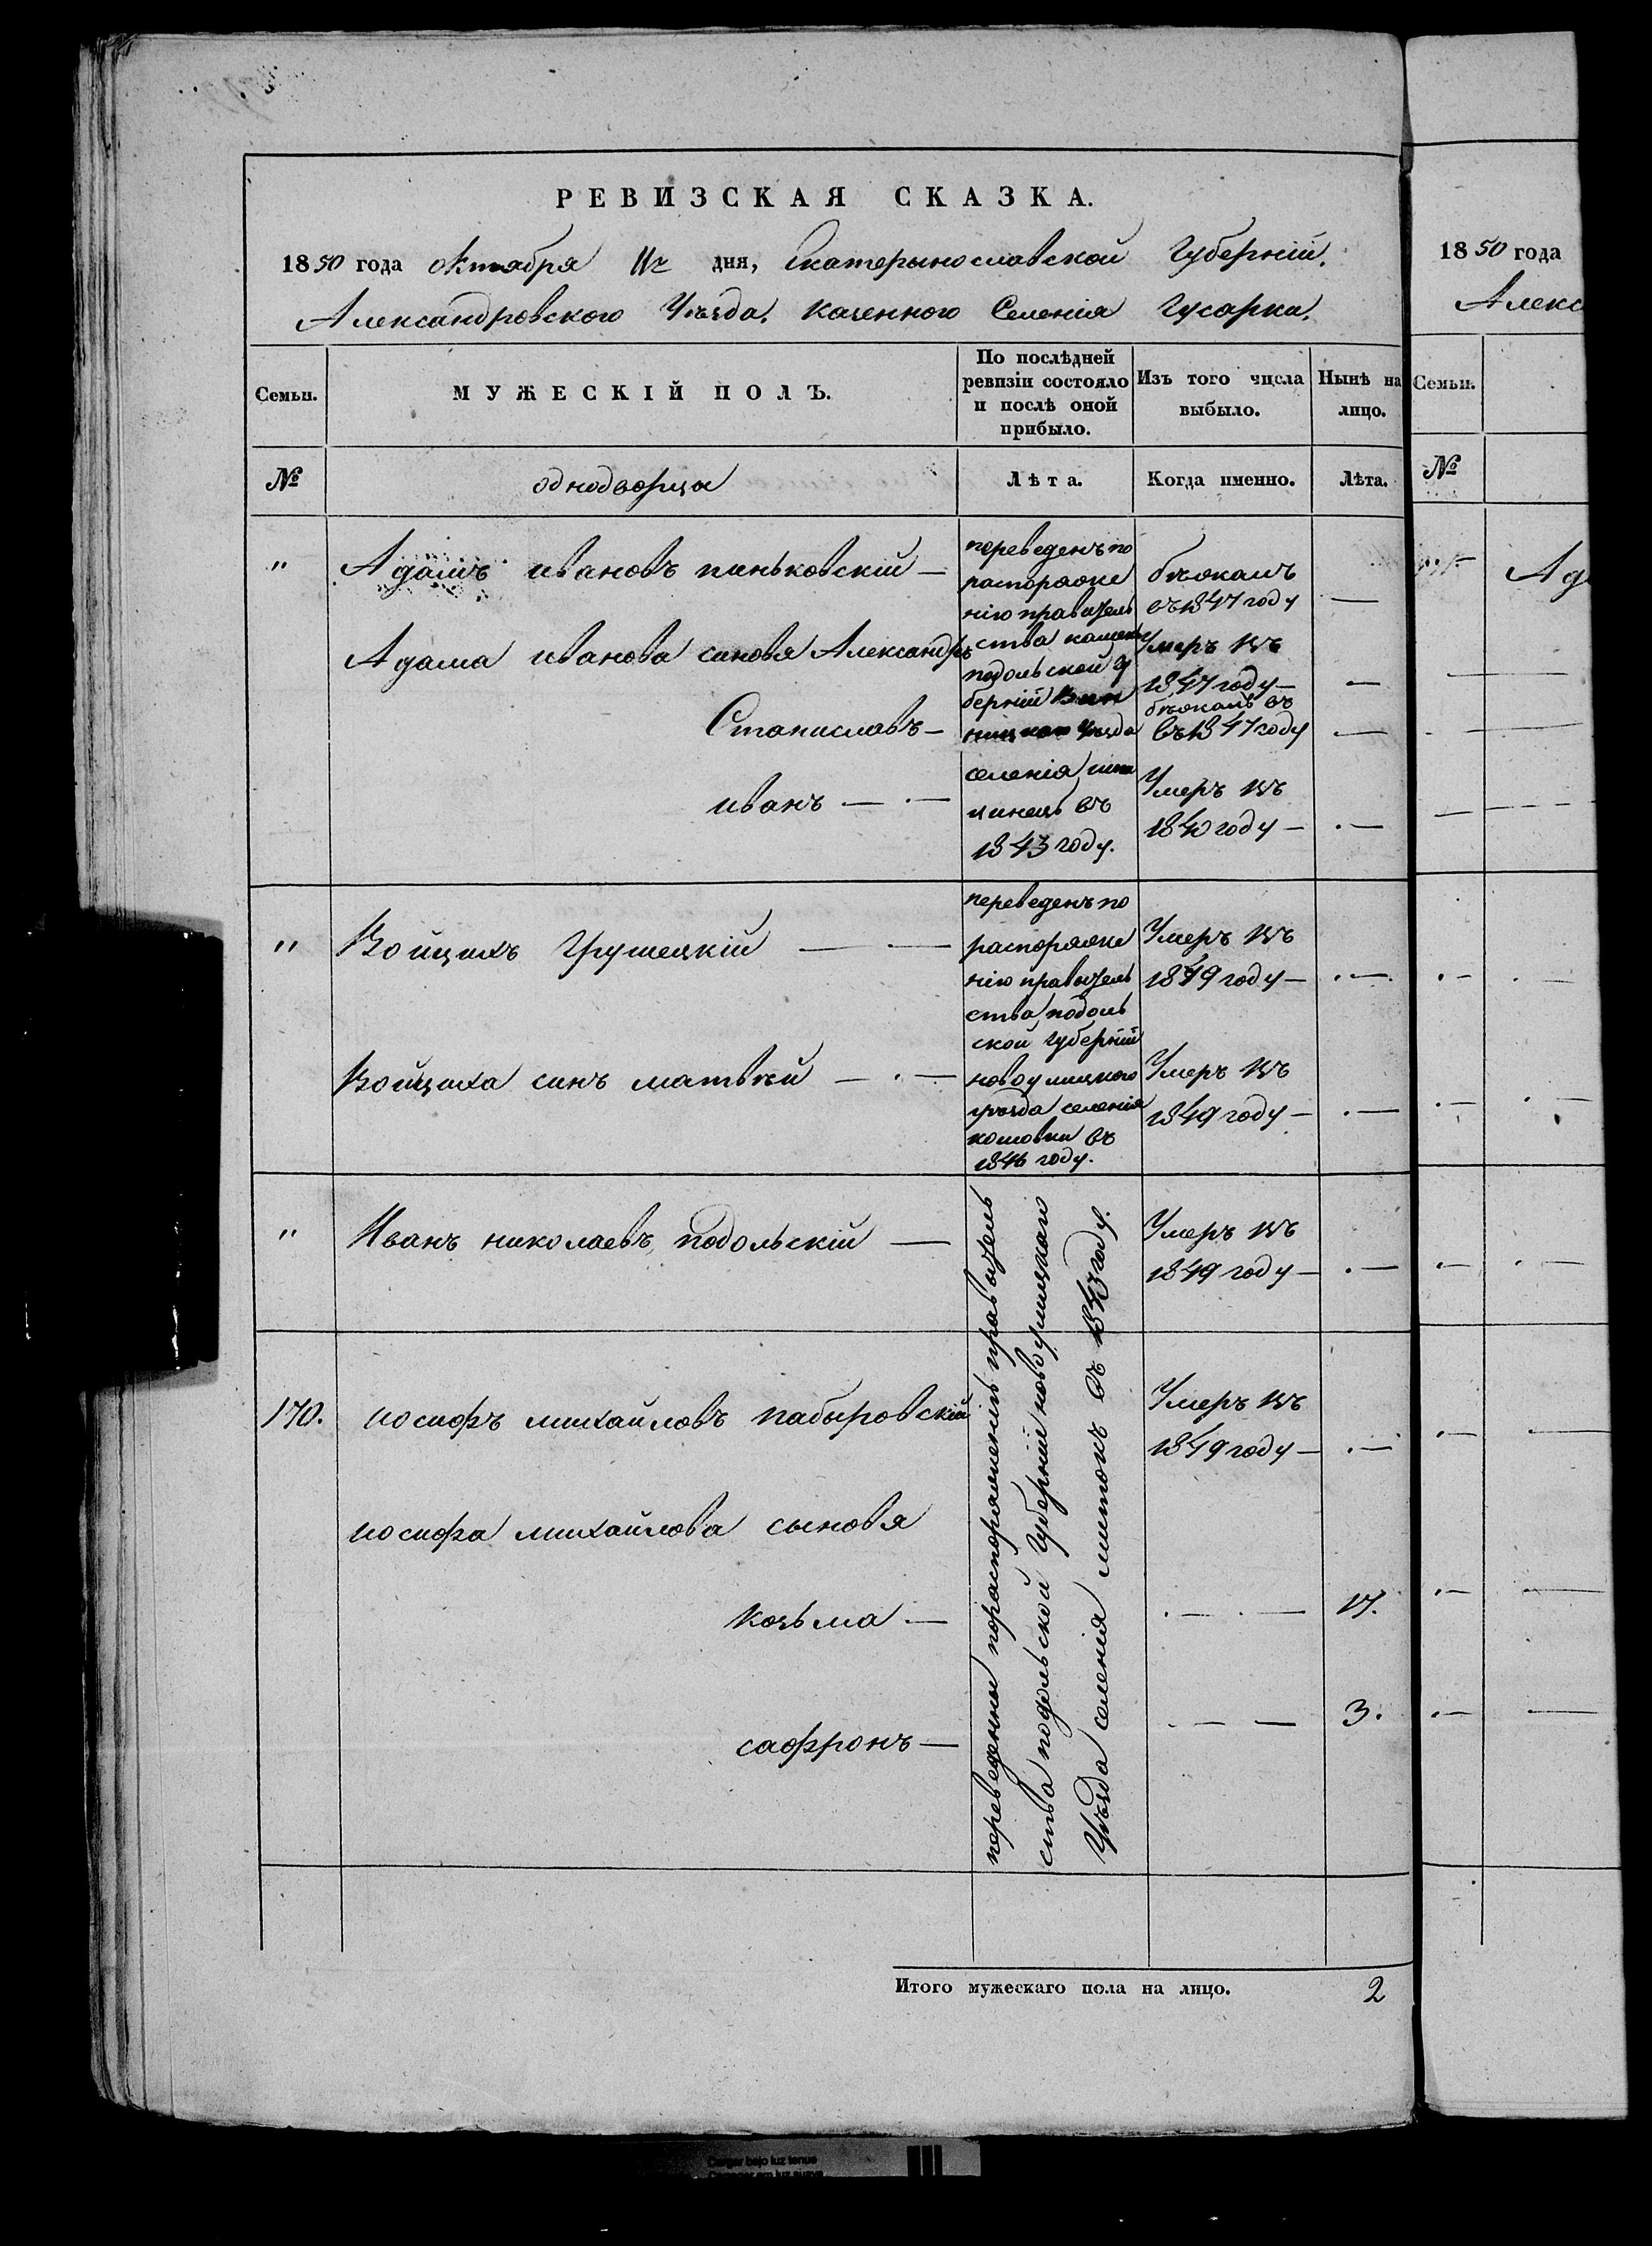 РЕВИЗСКАЯ СКАЗКА.
1850 года октября 11г дня, Екатерынославской Губерніи.
Александровского Уѣзда. казенного Селенія Гусарки.
Семьи.
МУЖЕСКІЙ ПОЛЪ.
По послѣдней
ревизіи состояло
и послѣ оной
прибыло.
Изъ того числа
выбыло.
Нынѣ на
лицо.
№
однодворцы
Лѣта.
Когда именно.
Лѣта.
"
Адамъ ивановъ пиньковскій —
переведенъ по
распоряже
нію правитель
ства
подольской гу
берніи Вин
ницкого Уѣзда
селенія
въ
1843 году.
бѣжалъ
въ 1847 году
—
Адама иванова синовя Александръ
Умеръ въ
1847 году —
—
Станиславъ —
бѣжалъ въ
въ 1847 году
—
иванъ — · —
Умеръ въ
1840 году —
· —
"
Войцихъ Грушецкій — —
переведенъ по
распоряже
нію правитель
ства подоль
ской губерніи
новоушицкого
уѣзда селенія
въ
1846 году.
Умеръ въ
1849 году —
· —
Войциха синъ матвѣй — · —
Умеръ въ
1849 году —
· —
"
Иванъ николаевъ подольскій —
Умеръ въ
1849 году —
· —
переведенны пораспоряженію правитель
ства подольской Губерніи новоушицкаго
Уѣзда селенія въ 1843 году.
170.
иосифъ михайловъ пабыровскій
Умеръ въ
1849 году —
· —
иосифа михайлова сыновя
козьма —
· — · —
17.
сафронъ —
· — —
3.
Итого мужескаго пола на лицо.
2
1850 года
Алекс
Семьи.
№
Ад